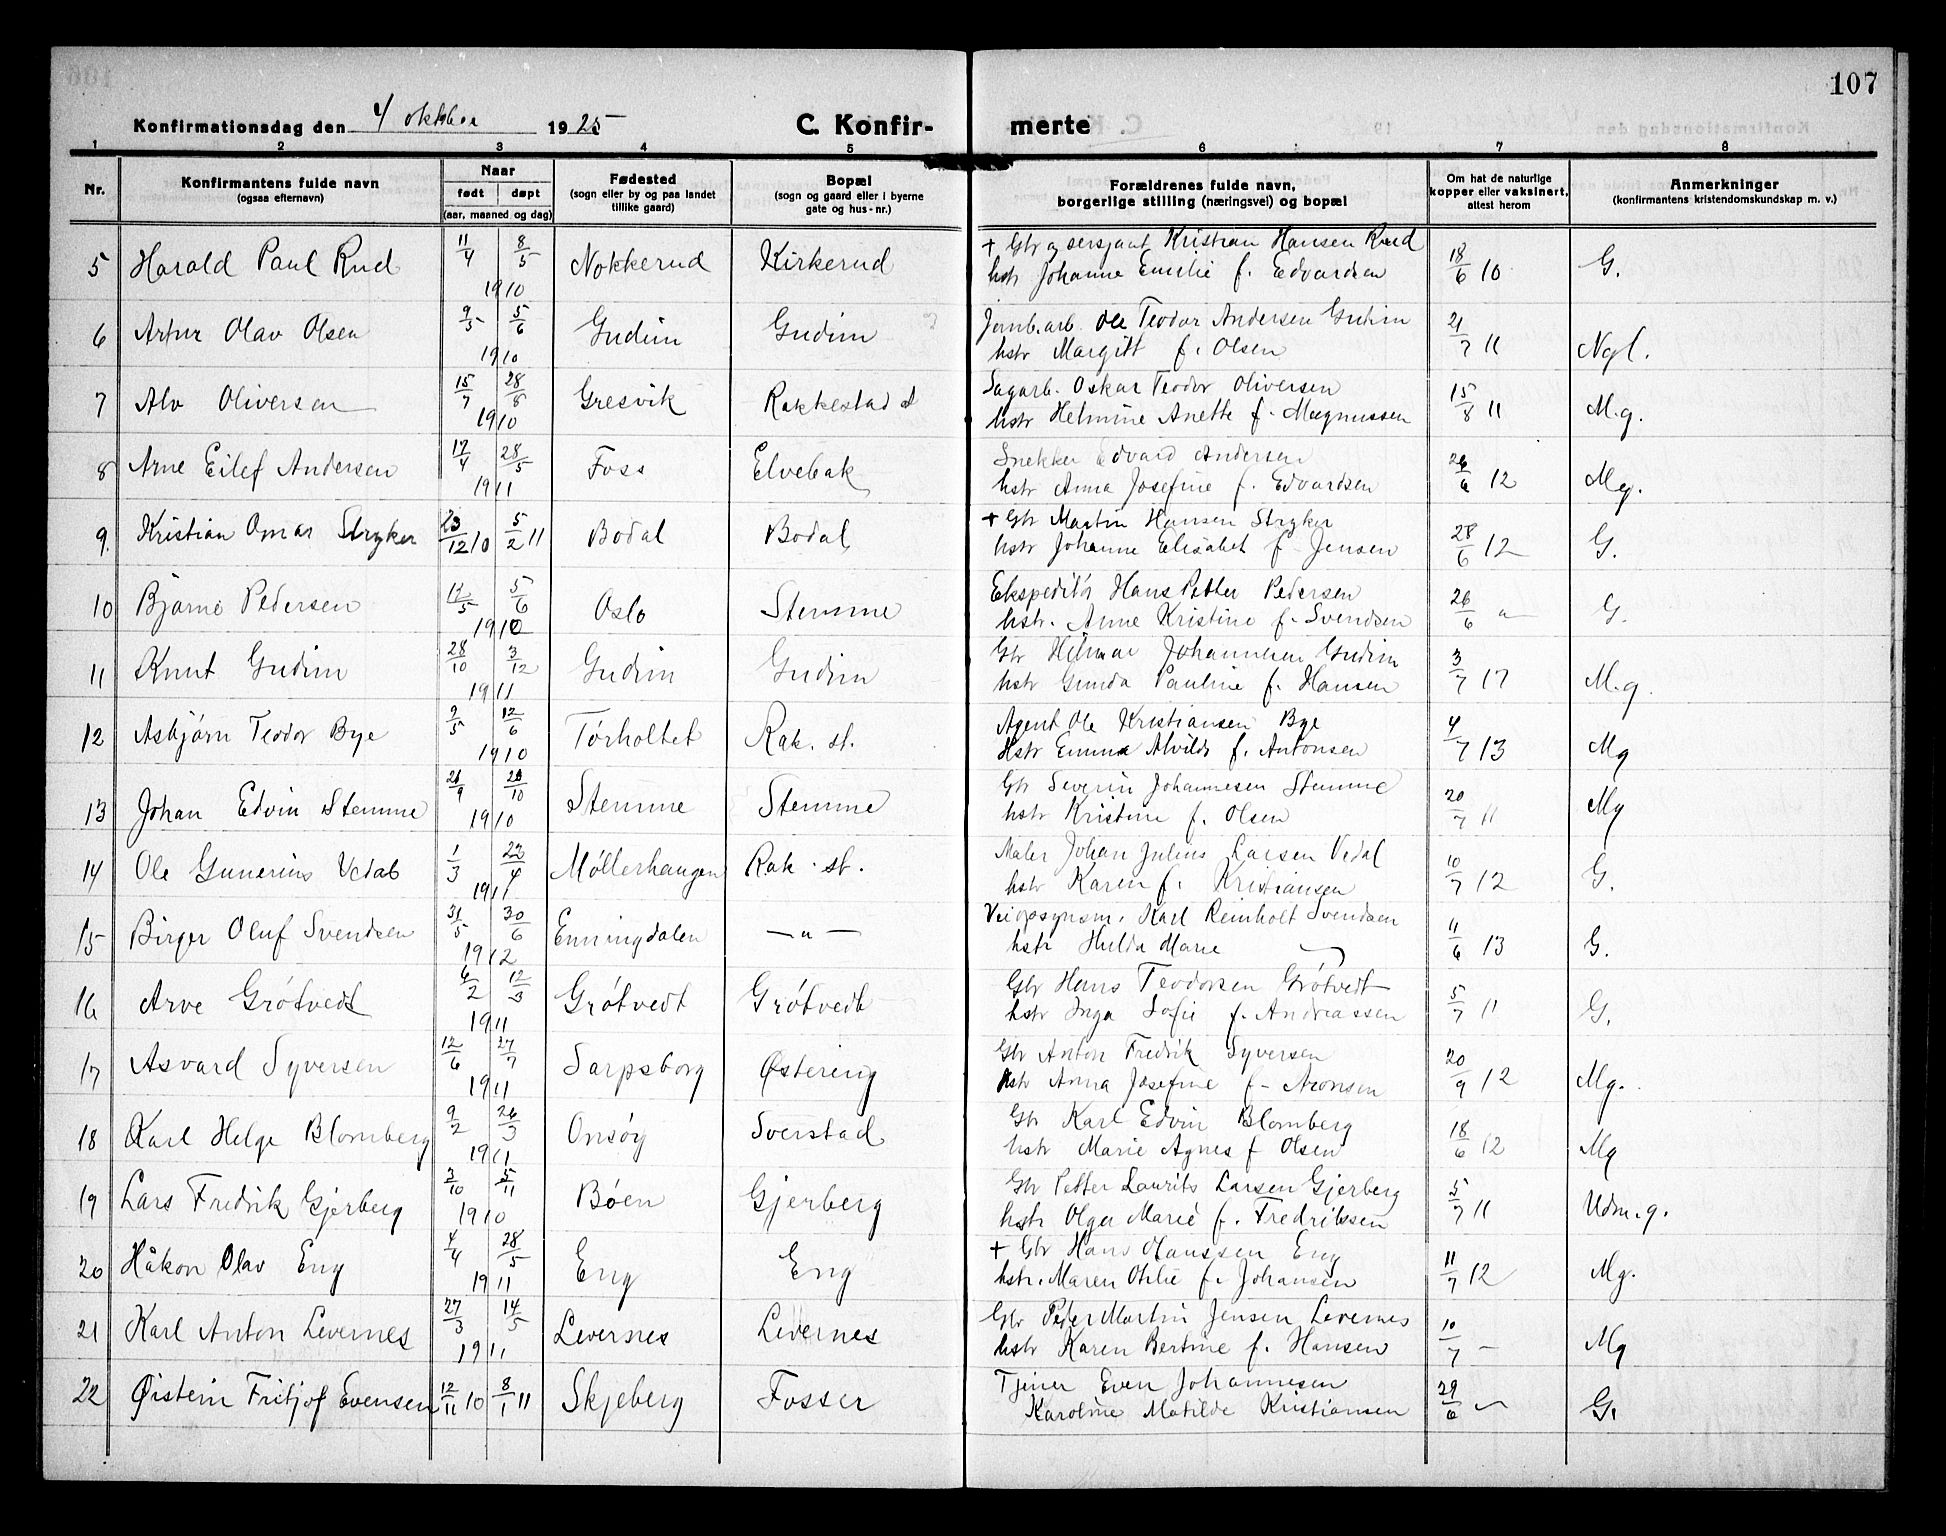 107
Konfirmationsdag den 4 oktober 1925 C. Konfir- merte
1 2 3 4 5 6 7 8
Nr. Konfirmantens fulde navn (ogsaa efternavn) Naar født døpt (aar, maaned og dag) Fødested (sogn eller by og paa landet tillike gaard) Bopæl (sogn og gaard eller i byerne gate og hus-nr.) Forældrenes fulde navn, borgerlige stilling (næringsvei) og bopæl Om hat de naturlige kopper eller vaksinert, attest herom Anmerkninger (konfirmantens kristendomskundskap m. v.)
5 Harald Paul Rud 11/4 8/5 1910 Nokkerud Kirkerud + Gbr og sersjant Kristian Hansen Rud 18/6 10 G.
hstr Johanne Emilie f. Edvardsen
6 Artur Olav Olsen 9/5 5/6 1910 Gudim Gudim Jernb.arb. Ole Teodor Andersen Gudim 21/7 11 Ngl.
hstr Margitt f. Olsen
7 Alv Oliversen 15/7 28/8 1910 Gresvik Rakkestad st Sagarb. Oskar Teodor Oliversen 15/8 11 M.g.
hstr Helmine Anette f. Magnussen
8 Arne Eilef Andersen 17/4 28/5 1911 Foss Elvebak Snekker Edvard Andersen 26/6 12 Mg.
hstr Anna Josefine f. Edvardsen
9. Kristian Omar Stryker 23/12 10 5/2 11 Bodal Bodal + Gbr Martin Hansen Stryker 28/6 12 G.
hstr Johanne Elisabet f. Jensen
10 Bjarne Pedersen 12/5 5/6 1910 Oslo Stemme Ekspeditør Hans Petter Pedersen 26/6 " G.
hstr. Anne Kristine f. Svendsen
11 Knut Gudim 28/10 3/12 1911 Gudim Gudim Gbr Hilmar Johannesen Gudim 3/7 17 M.g.
hstr Gunda Pauline f. Hansen
12 Asbjørn Teodor Bye 2/5 12/6 1910 Tørholtet Rak. st. Agent Ole Kristiansen Bye 4/7 13 Mg
Hstr Emma Alvilde f. Antonsen
13 Johan Edvin Stemme 21/9 23/10 1910 Stemme Stemme Gbr Severin Johannesen Stemme 20/7 11 Mg
hstr Kristine f. Olsen
14 Ole Gunerius Vedal 1/3 23/4 1911 Møllerhaugen Rak. st. Maler Johan Julius Larsen Vedal 10/7 12 G.
hstr Karen f. Kristiansen
15 Birger Oluf Svendsen 31/5 30/6 1912 Enningdalen — " — Veiopsynsm. Karl Reinholt Svendsen 11/6 13 G.
hstr Hulda Marie
16 Arve Grøtvedt 6/2 12/3 1911 Grøtvedt Grøtvedt Gbr Hans Teodorsen Grøtvedt 5/7 11 G.
hstr Inga Sofie f. Andreassen
17 Asvard Syversen 12/6 27/7 1911 Sarpsborg Østereng Gbr Anton Fredrik Syversen 20/9 12 Mg.
hstr Anna Josefine f. Aronsen
18 Karl Helge Blomberg 2/2 26/3 1911 Onsøy Sverstad Gbr Karl Edvin Blomberg 18/6 12 Mg
hstr Marie Agnes f Olsen
19 Lars Fredrik Gjerberg 3/10 5/11 1910 Bøen Gjerberg Gbr Petter Laurits Larsen Gjerberg 5/7 11 Udm.g.
hstr Olga Marie f. Fredriksen
20 Håkon Olav Eng 4/4 28/5 1911 Eng Eng + Gbr Hans Hanssen Eng 11/7 12 Mg.
hstr. Maren Otilie f. Johansen
21 Karl Anton Levernes 27/3 14/5 1911 Levernes Levernes Gbr Peder Martin Jensen Levernes 10/7 — Mg
hstr Karen Bertine f. Hansen
22 Øistein Fritjof Evensen 12/11 10 8/1 11 Skjeberg Fosser Tjener Even Johannesen 29/6 " G.
Karoline Matilde Kristiansen